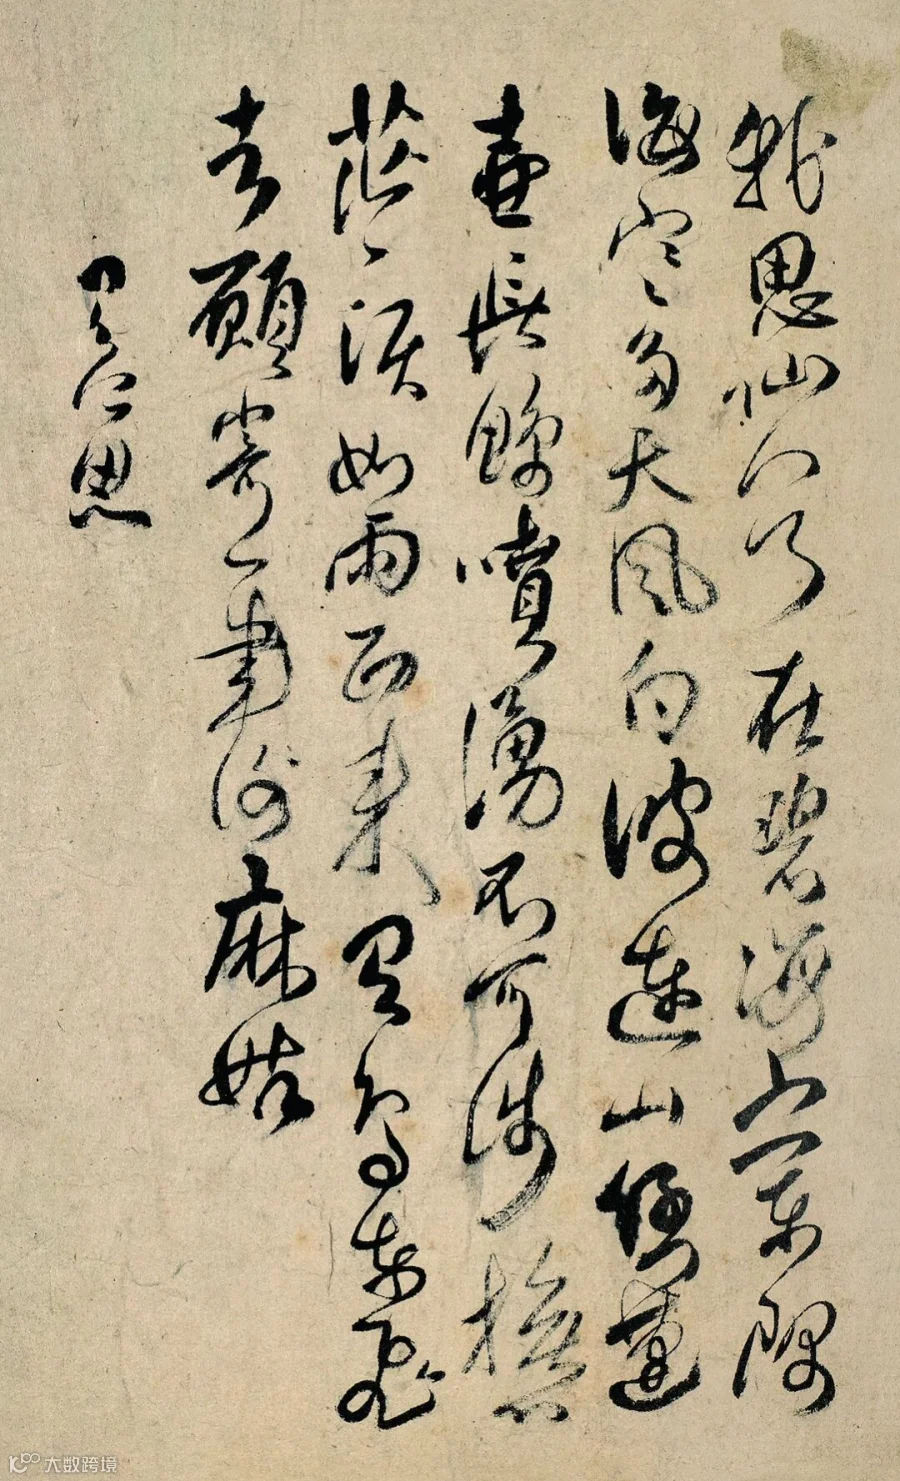 我思仙人乃在碧海之東隅
海寒多天風白波連山倒蓬
壺長鯨噴湧不可涉撫心
茫〻淚如雨西來青鳥東飛
去願寄一書謝麻姑
有所思
大数跨境